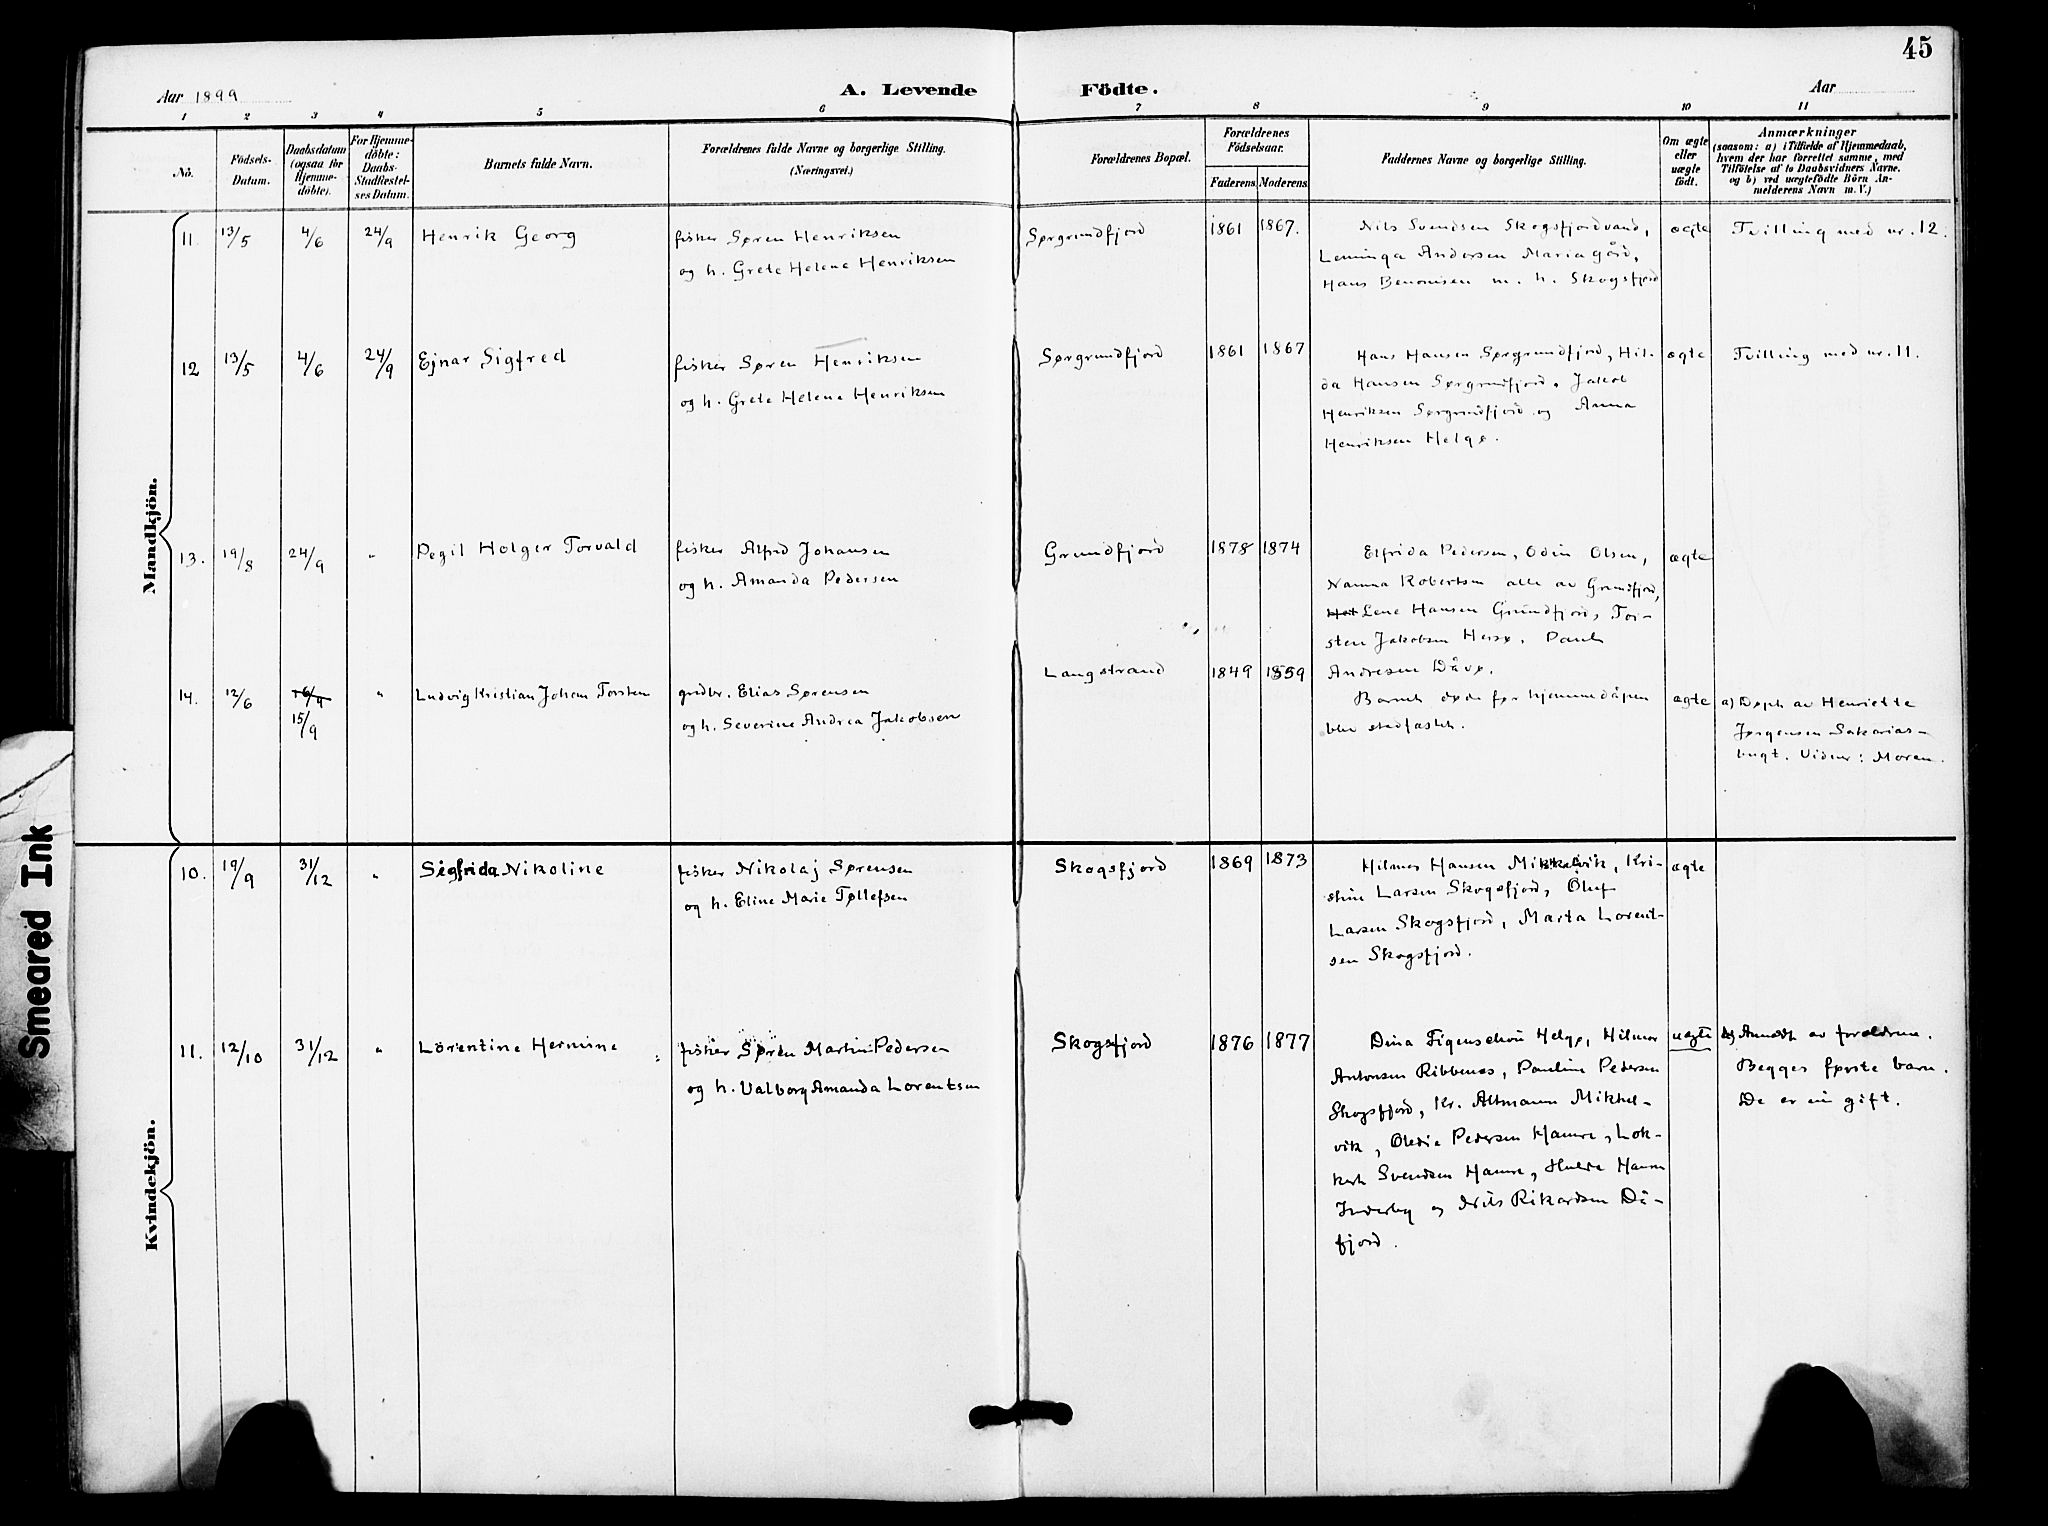 45
Aar 1899
A. Levende Födte.
Aar
1 2 3 4 5 6 7 8 9 10 11
No.
Födsels-Datum.
Daabsdatum (ogsaa för Hjemme-döbte).
For Hjemme-döbte: Daabs-Stadfæstel-ses Datum.
Barnets fulde Navn.
Forældrenes fulde Navne og borgerlige Stilling.
(Næringsvei.)
Forældrenes Bopæl.
Forældrenes Födselsaar.
Faderens Moderens
Faddernes Navne og borgerlige Stilling.
Om ægte eller uægte födt.
Anmærkninger
(saasom: a) i Tilfælde af Hjemmedaab,
hvem der har forrettet samme, med
Tilföielse af to Daabsvidners Navne.
og b) ved uægtefödte Börn An-
melderens Navn m. V.)
Mandkjön.
11. 13/5 4/6 24/9 Henrik Georg
fisker Søren Henriksen
og h. Grete Helene Henriksen
Sørgrundfjord 1861 1867.
Nils Svendsen Skogsfjordvand,
Leminga Andersen Mariagård,
Hans Benonisen m. h. Skogsfjord
ægte
Tvilling med nr. 12.
12 13/5 4/6 24/9 Ejnar Sigfred
fisker Søren Henriksen
og h. Grete Helene Henriksen
Sørgrundfjord 1861 1867
Hans Hansen Sørgrundfjord, Hil-
da Hansen Sørgrundfjord, Jakob
Henriksen Sørgrundfjord og Anna
Henriksen Helgø.
ægte
Tvilling med nr. 11.
13. 19/8 24/9 " Pegil Holger Torvald
fisker Alfred Johansen
og h. Amanda Pedersen
Grundfjord 1878 1874
Elfrida Pedersen, Odin Olsen,
Nanna Robertsen alle av Grundfjord,
Lene Hansen Grundfjord, Tor-
sten Jakobsen Hersø, Paul
Andresen Dåvø.
ægte
14. 12/6 15/9 " Ludvig Kristian Johan Torsten
grdbr. Elias Sørensen
og h. Severine Andrea Jakobsen
Langstrand 1849 1859
Barnet døde før hjemmedåpen
blev stadfæstet.
ægte
a) Døpt av Henriette
Jørgensen Sakarias-
bugt. Vidner: Moren.
Kvindekjön.
10. 19/9 31/12 " Sigfrida Nikoline
fisker Nikolaj Sørensen
og h. Eline Marie Tøllefsen
Skogsfjord 1869 1873
Hilmor Hansen Mikkelvik, Kri-
stine Larsen Skogsfjord, Oluf
Larsen Skogsfjord, Marta Lorent-
sen Skogsfjord.
ægte
11. 12/10 31/12 " Lorentine Hermine
fisker Søren Martin Pedersen
og h. Valborg Amanda Lorentsen
Skogsfjord 1876 1877
Dina Figenschou Helgø, Hilmor
Antonsen Ribbenes, Pauline Pedersen
Skogsfjord, Kr. Altmann Mikkel-
vik, Oledie Pedersen Hamre,
Svendsen Hamre, Hulda Hansen
Inderby og Nils Rikardsen Då-
fjord.
uægte
b) Anmeldt av forældrene.
Begges første barn.
De er ein gift.
Smeared Ink